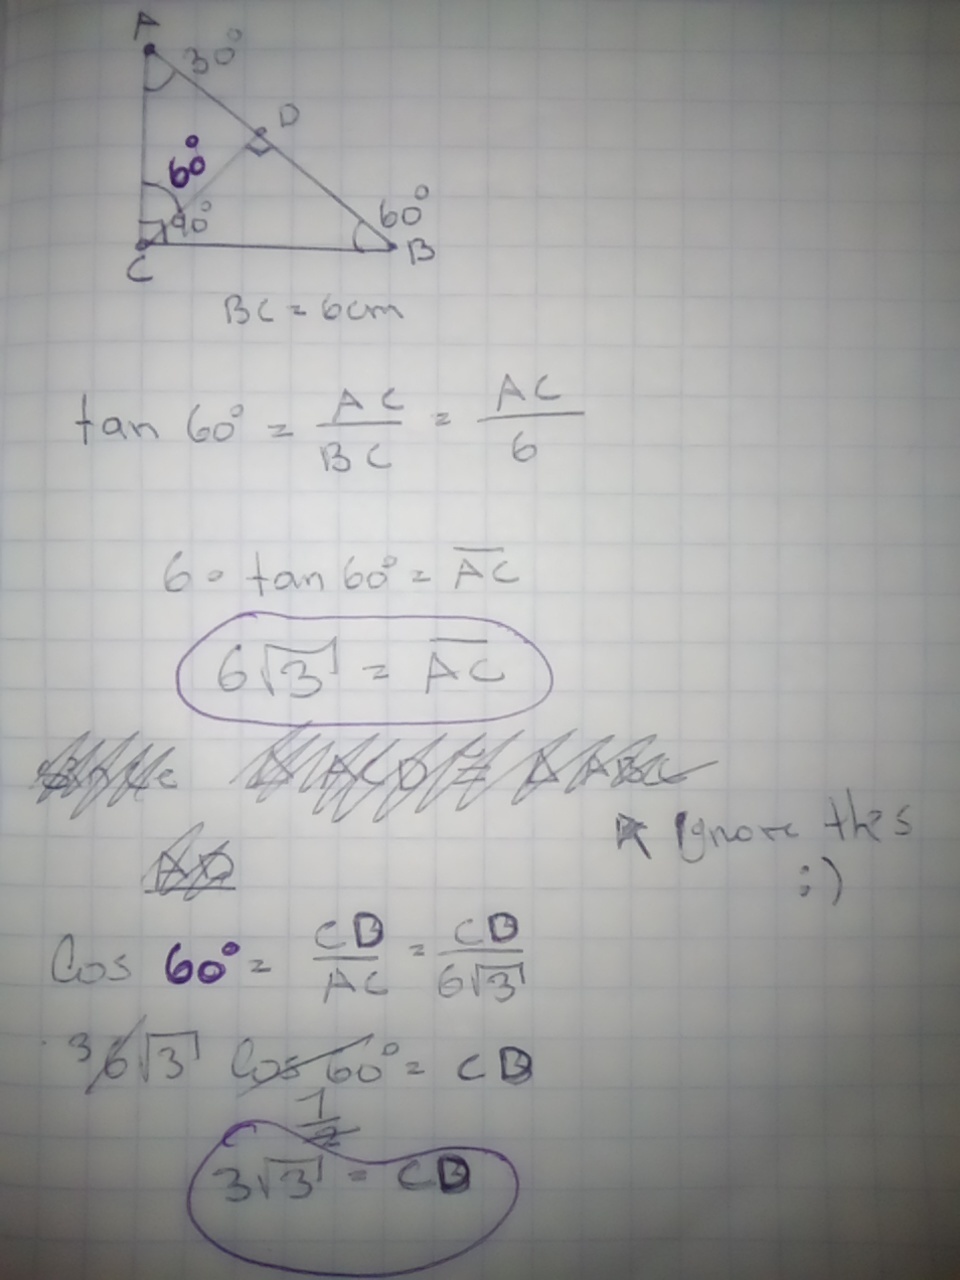 A
30°
D
60°
90°
60°
C
B
BC = 6cm
tan 60° = AC/BC = AC/6
6 · tan 60° = A̅C̅
6√3 = A̅C̅
△ ACD ≅ △ ABC
AD
* Ignore this
:)
Cos 60° = CD/AC = CD/6√3
3 6√3 Cos 60° = CD
1/2
3√3 = CD